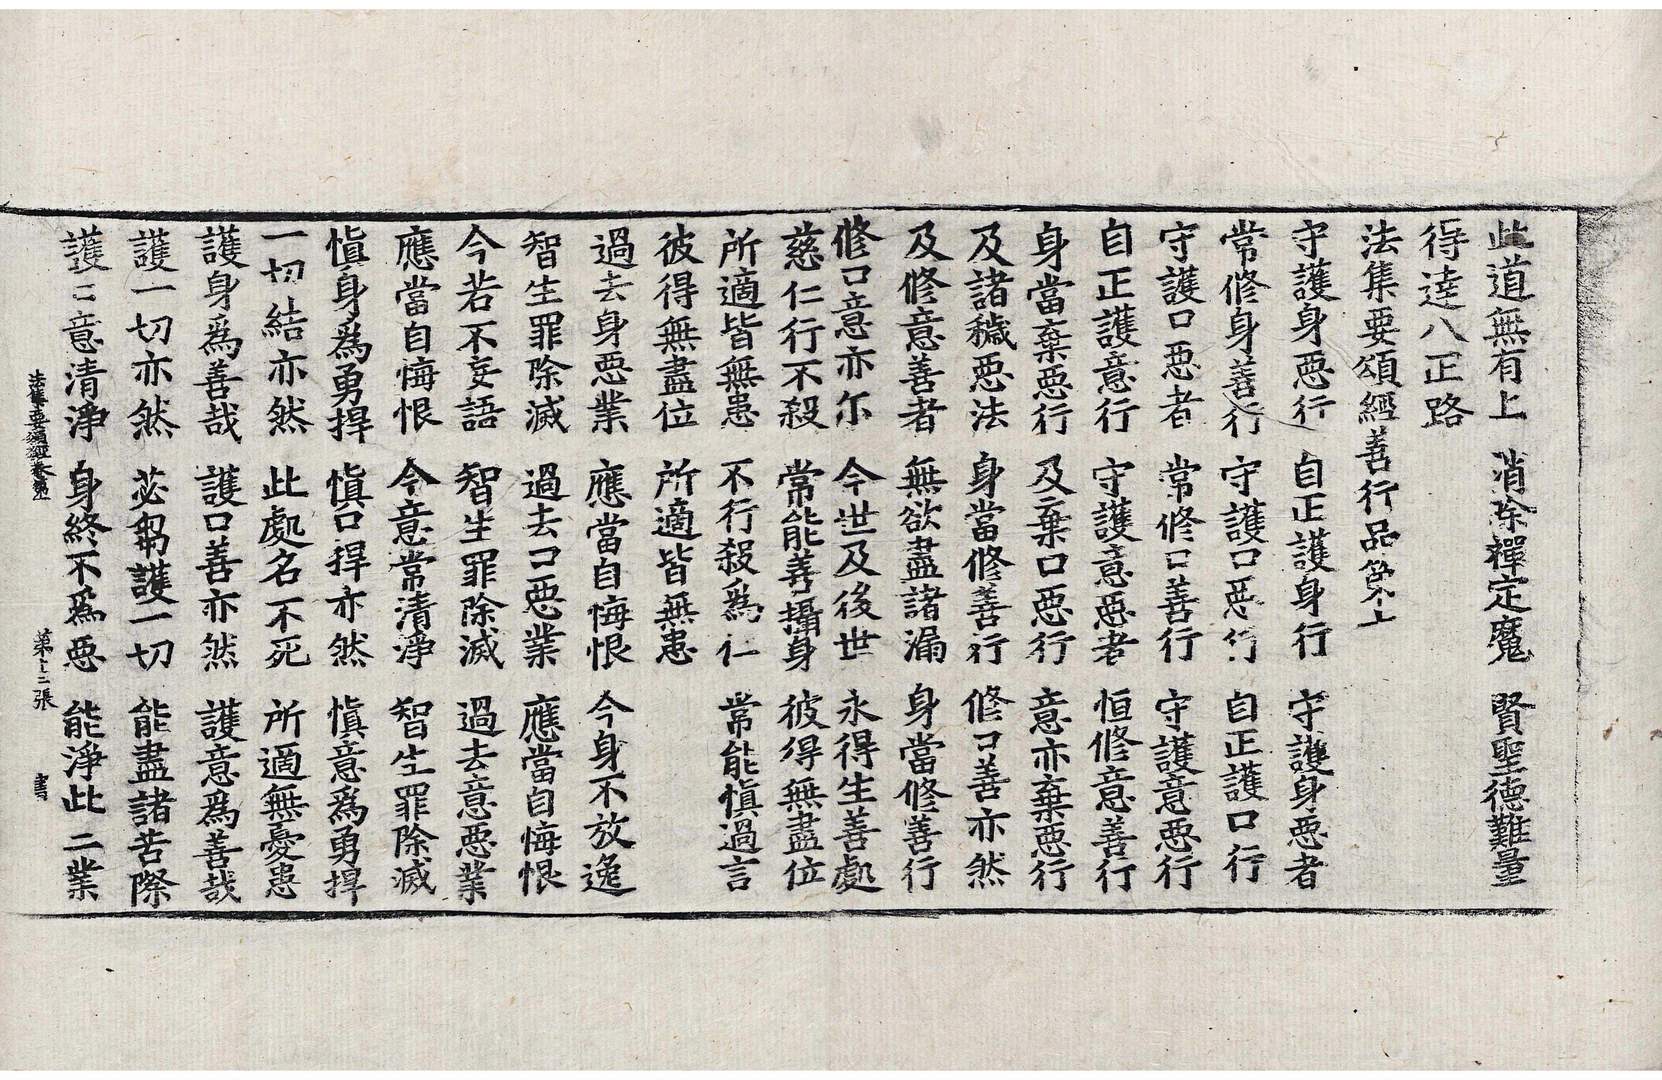 此道無有上 消除禪定魔 賢聖德難量
得達八正路
法集要頌經善行品第七
守護身惡行 自正護身行 守護身惡者
常修身善行 守護口惡行 自正護口行
守護口惡者 常修口善行 守護意惡行
自正護意行 守護意惡者 恒修意善行
身當棄惡行 及棄口惡行 意亦棄惡行
及諸穢惡法 身當修善行 修口善亦然
及修意善者 無欲盡諸漏 身當修善行
修口意亦尔 今世及後世 永得生善處
慈仁行不殺 常能善攝身 彼得無盡位
所適皆無患 不行殺為仁 常能慎過言
彼得無盡位 所適皆無患
過去身惡業 應當自悔恨 今身不放逸
智生罪除滅 過去口惡業 應當自悔恨
今若不妄語 智生罪除滅 過去意惡業
應當自悔恨 今意常清淨 智生罪除滅
慎身爲勇捍 慎口捍亦然 慎意爲勇捍
一切結亦然 此處名不死 所適無憂患
護身爲善哉 護口善亦然 護意爲善哉
護一切亦然 苾芻護一切 能盡諸苦際
護口意清淨 身終不爲惡 能淨此二業
法集要頌經卷第一 第十二張 書